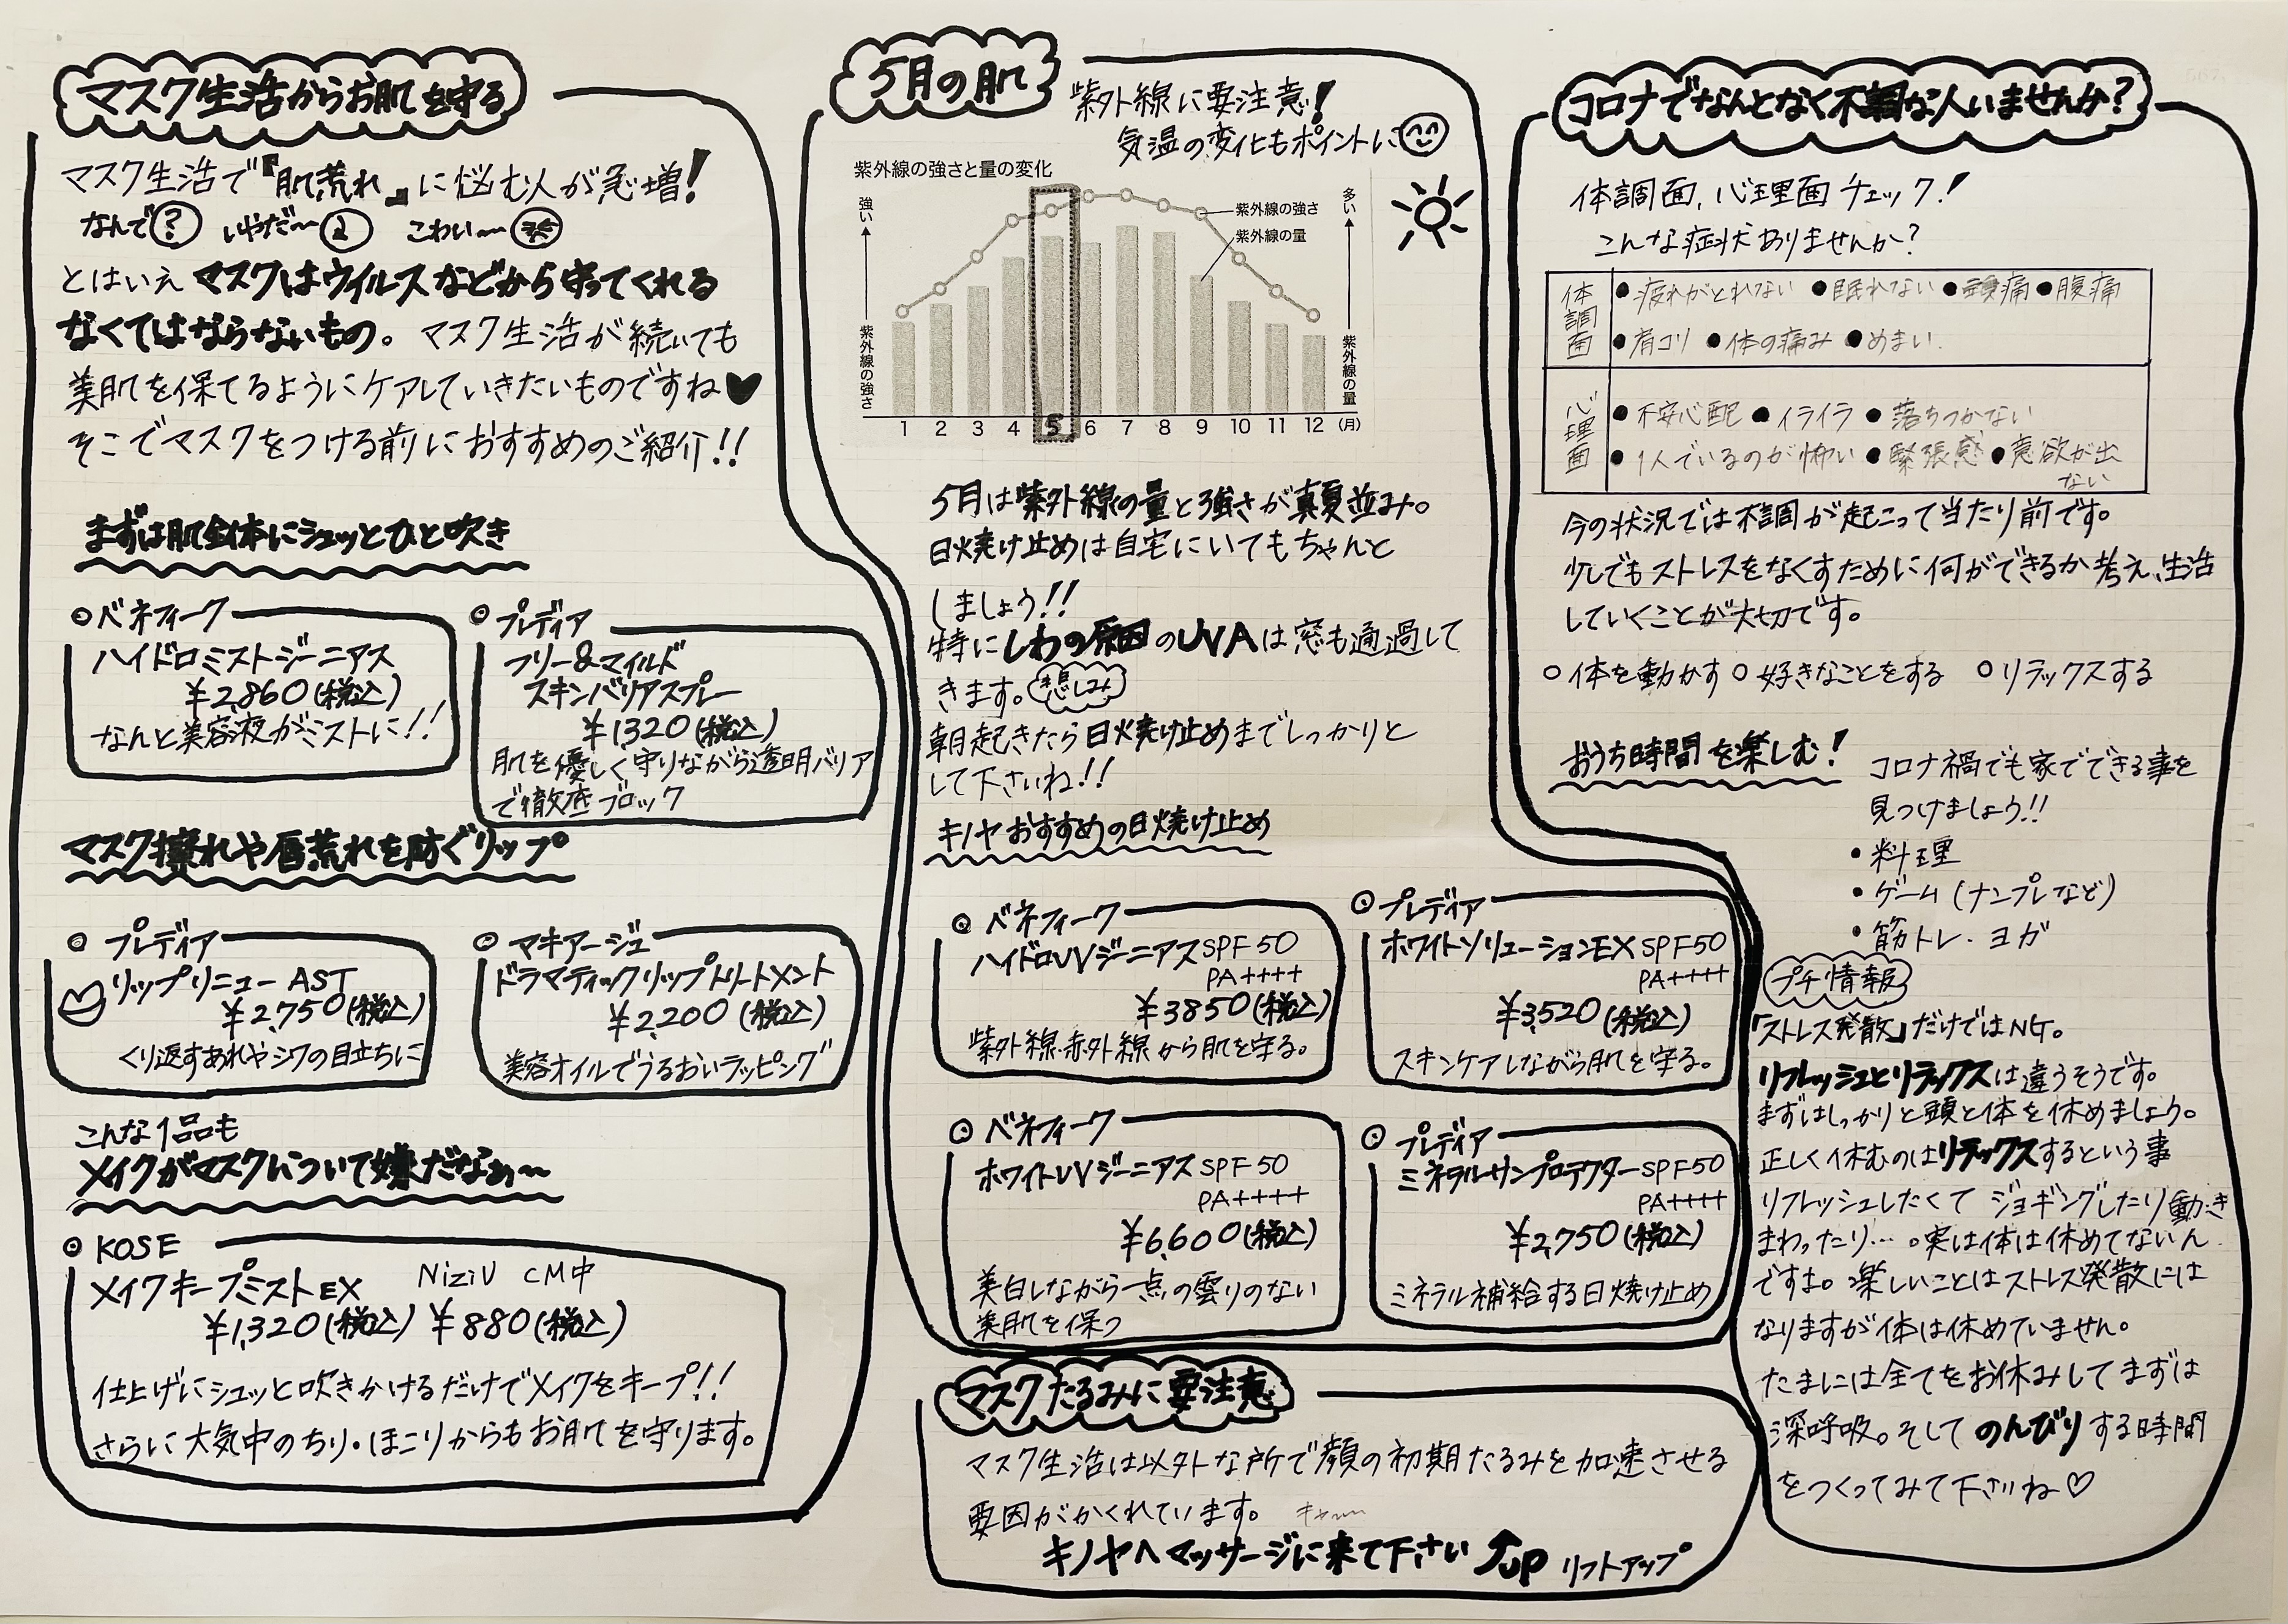 マスク生活からお肌を守る
マスク生活で『肌荒れ』に悩む人が急増!
なんで? いやだ〜 こわい〜
とはいえマスクはウイルスなどから守ってくれる
なくてはならないもの。マスク生活が続いても
美肌を保てるようにケアしていきたいものですね♥
そこでマスクをつける前におすすめのご紹介!!
まずは肌全体にシュッとひと吹き
◎ベネフィーク
ハイドロミストジーニアス
¥2,860(税込)
なんと美容液がミストに!!
◎プレディア
フリー&マイルド
スキンバリアスプレー
¥1320(税込)
肌を優しく守りながら透明バリア
で徹底ブロック
マスク擦れや唇荒れを防ぐリップ
◎プレディア
リップリニューAST
¥2,750(税込)
くり返すあれやシワの目立ちに
◎マキアージュ
ドラマティックリップトリートメント
¥2,200(税込)
美容オイルでうるおいラッピング
こんな1品も
メイクがマスクについて嫌だなぁ〜
◎KOSE
メイクキープミストEX NiziU CM中
¥1,320(税込) ¥880(税込)
仕上げにシュッと吹きかけるだけでメイクをキープ!!
さらに大気中のちり・ほこりからもお肌を守ります。
5月の肌
紫外線に要注意!
気温の変化もポイントに
紫外線の強さと量の変化
強い
紫外線の強さ
多い
紫外線の量
紫外線の強さ
紫外線の量
1 2 3 4 5 6 7 8 9 10 11 12 (月)
5月は紫外線の量と強さが真夏並み。
日焼け止めは自宅にいてもちゃんと
しましょう!!
特にしわの原因のUVAは窓も通過して
きます。
朝起きたら日焼け止めまでしっかりと
して下さいね!!
キノヤおすすめの日焼け止め
◎ベネフィーク
ハイドロUVジーニアスSPF50
PA++++
¥3850(税込)
紫外線・赤外線から肌を守る。
◎プレディア
ホワイトソリューションEX SPF50
PA++++
¥3,520(税込)
スキンケアしながら肌を守る。
◎ベネフィーク
ホワイトUVジーニアスSPF50
PA++++
¥6,600(税込)
美白しながら一点の雲りのない
美肌を保つ
◎プレディア
ミネラルサンプロテクターSPF50
PA++++
¥2,750(税込)
ミネラル補給する日焼け止め
マスクたるみに要注意
マスク生活は以外な所で顔の初期たるみを加速させる
要因がかくれています。 キャー
キノヤへマッサージに来て下さい UP リフトアップ
コロナでなんとなく不調な人いませんか?
体調面、心理面チェック!
こんな症状ありませんか?
体調面
●疲れがとれない ●眠れない ●頭痛 ●腹痛
●肩コリ ●体の痛み ●めまい
心理面
●不安心配 ●イライラ ●落ちつかない
●1人でいるのが怖い ●緊張感 ●意欲が出
ない
今の状況では不調が起こって当たり前です。
少しでもストレスをなくすために何ができるか考え、生活
していくことが大切です。
○体を動かす ○好きなことをする ○リラックスする
おうち時間を楽しむ!
コロナ禍でも家でできる事を
見つけましょう!!
・料理
・ゲーム(ナンプレなど)
・筋トレ・ヨガ
プチ情報
「ストレス発散」だけではNG。
リフレッシュとリラックスは違うそうです。
まずはしっかりと頭と体を休めましょう。
正しく休むのはリラックスするという事
リフレッシュしたくてジョギングしたり動き
まわったり…。実は体は休めてないん
ですよ。楽しいことはストレス発散には
なりますが体は休めていません。
たまには全てをお休みしてまずは
深呼吸。そしてのんびりする時間
をつくってみて下さいね♡